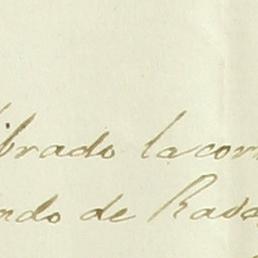 ibrado la corr
ndo de Rada